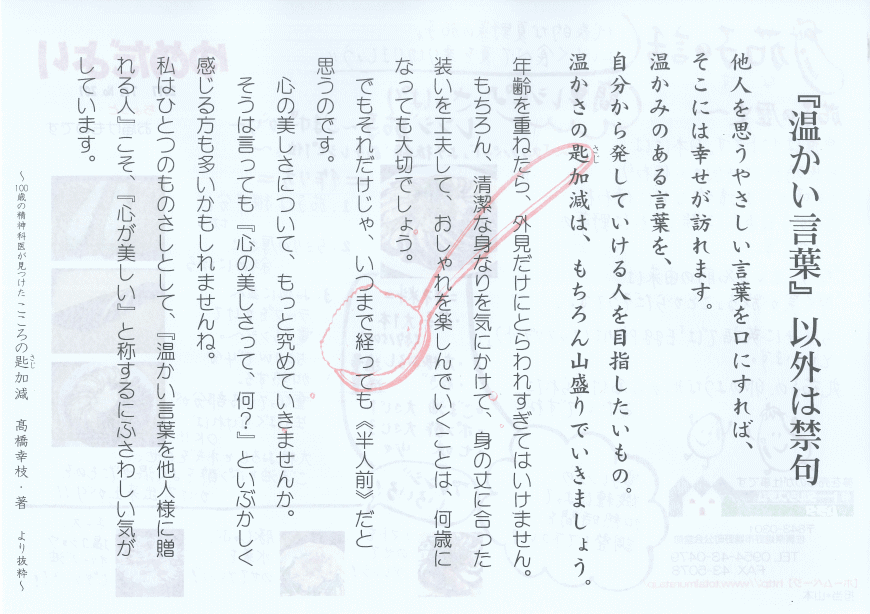 『温かい言葉』以外は禁句
他人を思うやさしい言葉を口にすれば、
そこには幸せが訪れます。
温かみのある言葉を、
自分から発していける人を目指したいもの。
温かさの匙加減は、もちろん山盛りでいきましょう。
さじ
年齢を重ねたら、外見だけにとらわれすぎてはいけません。
もちろん、清潔な身なりを気にかけて、身の丈に合った
装いを工夫して、おしゃれを楽しんでいくことは、何歳に
なっても大切でしょう。
でもそれだけじゃ、いつまで経っても《半人前》だと
思うのです。
心の美しさについて、もっと究めていきませんか。
そうは言っても『心の美しさって、何？』といぶかしく
感じる方も多いかもしれませんね。
私はひとつのものさしとして、『温かい言葉を他人様に贈
れる人』こそ、『心が美しい』と称するにふさわしい気が
しています。
～100歳の精神科医が見つけた こころの匙加減 髙橋幸枝・著 より抜粋～
さじ